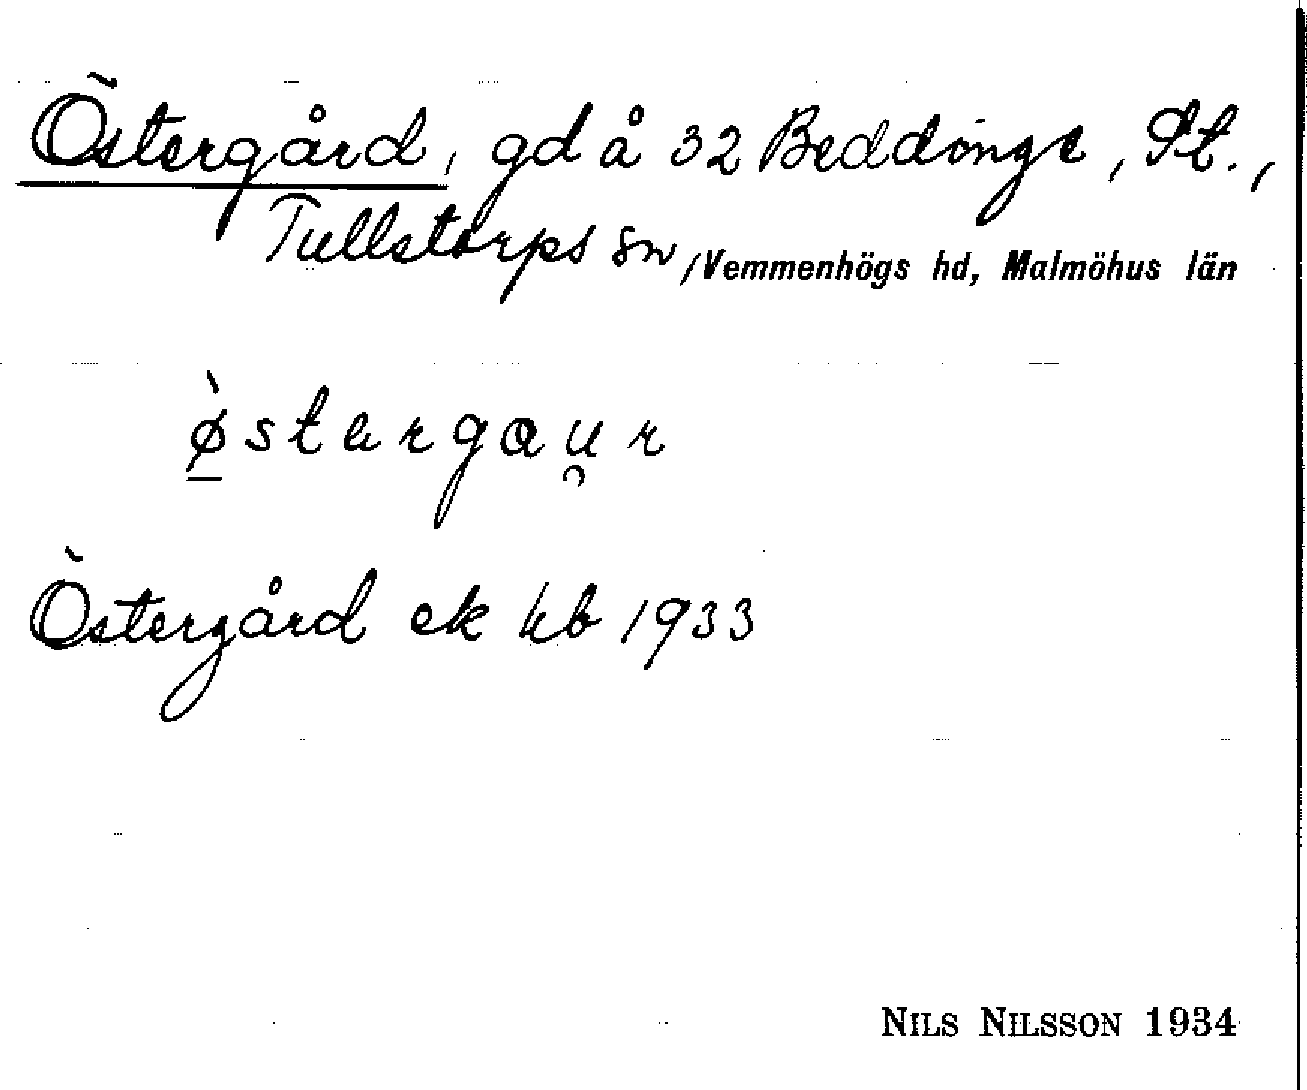 Östergård, gd å 32 Beddinge, St.,
Tullstorps sn, Vemmenhögs hd, Malmöhus län
ø̲̀stərgau̯r
Östergård ek kb 1933
NILS NILSSON 1934